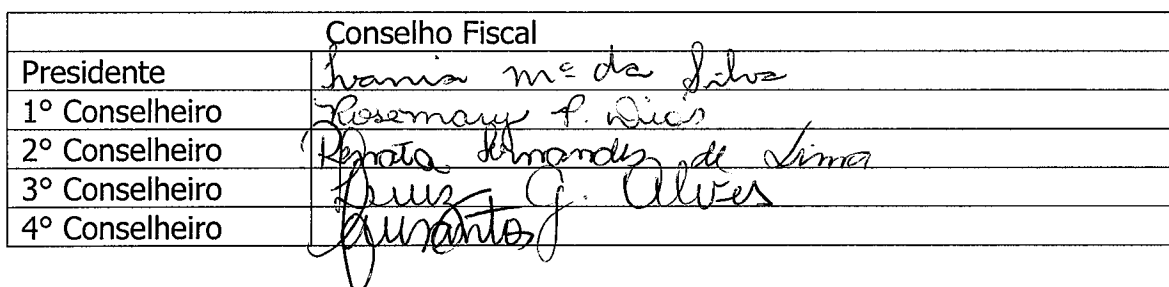 Conselho Fiscal
Presidente Ivania Mª da Silva
1º Conselheiro Rosemary P. Dias
2º Conselheiro Renata Fernandes de Lima
3º Conselheiro Luiz G. Alves
4º Conselheiro